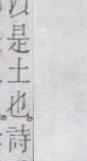 是土也。詩